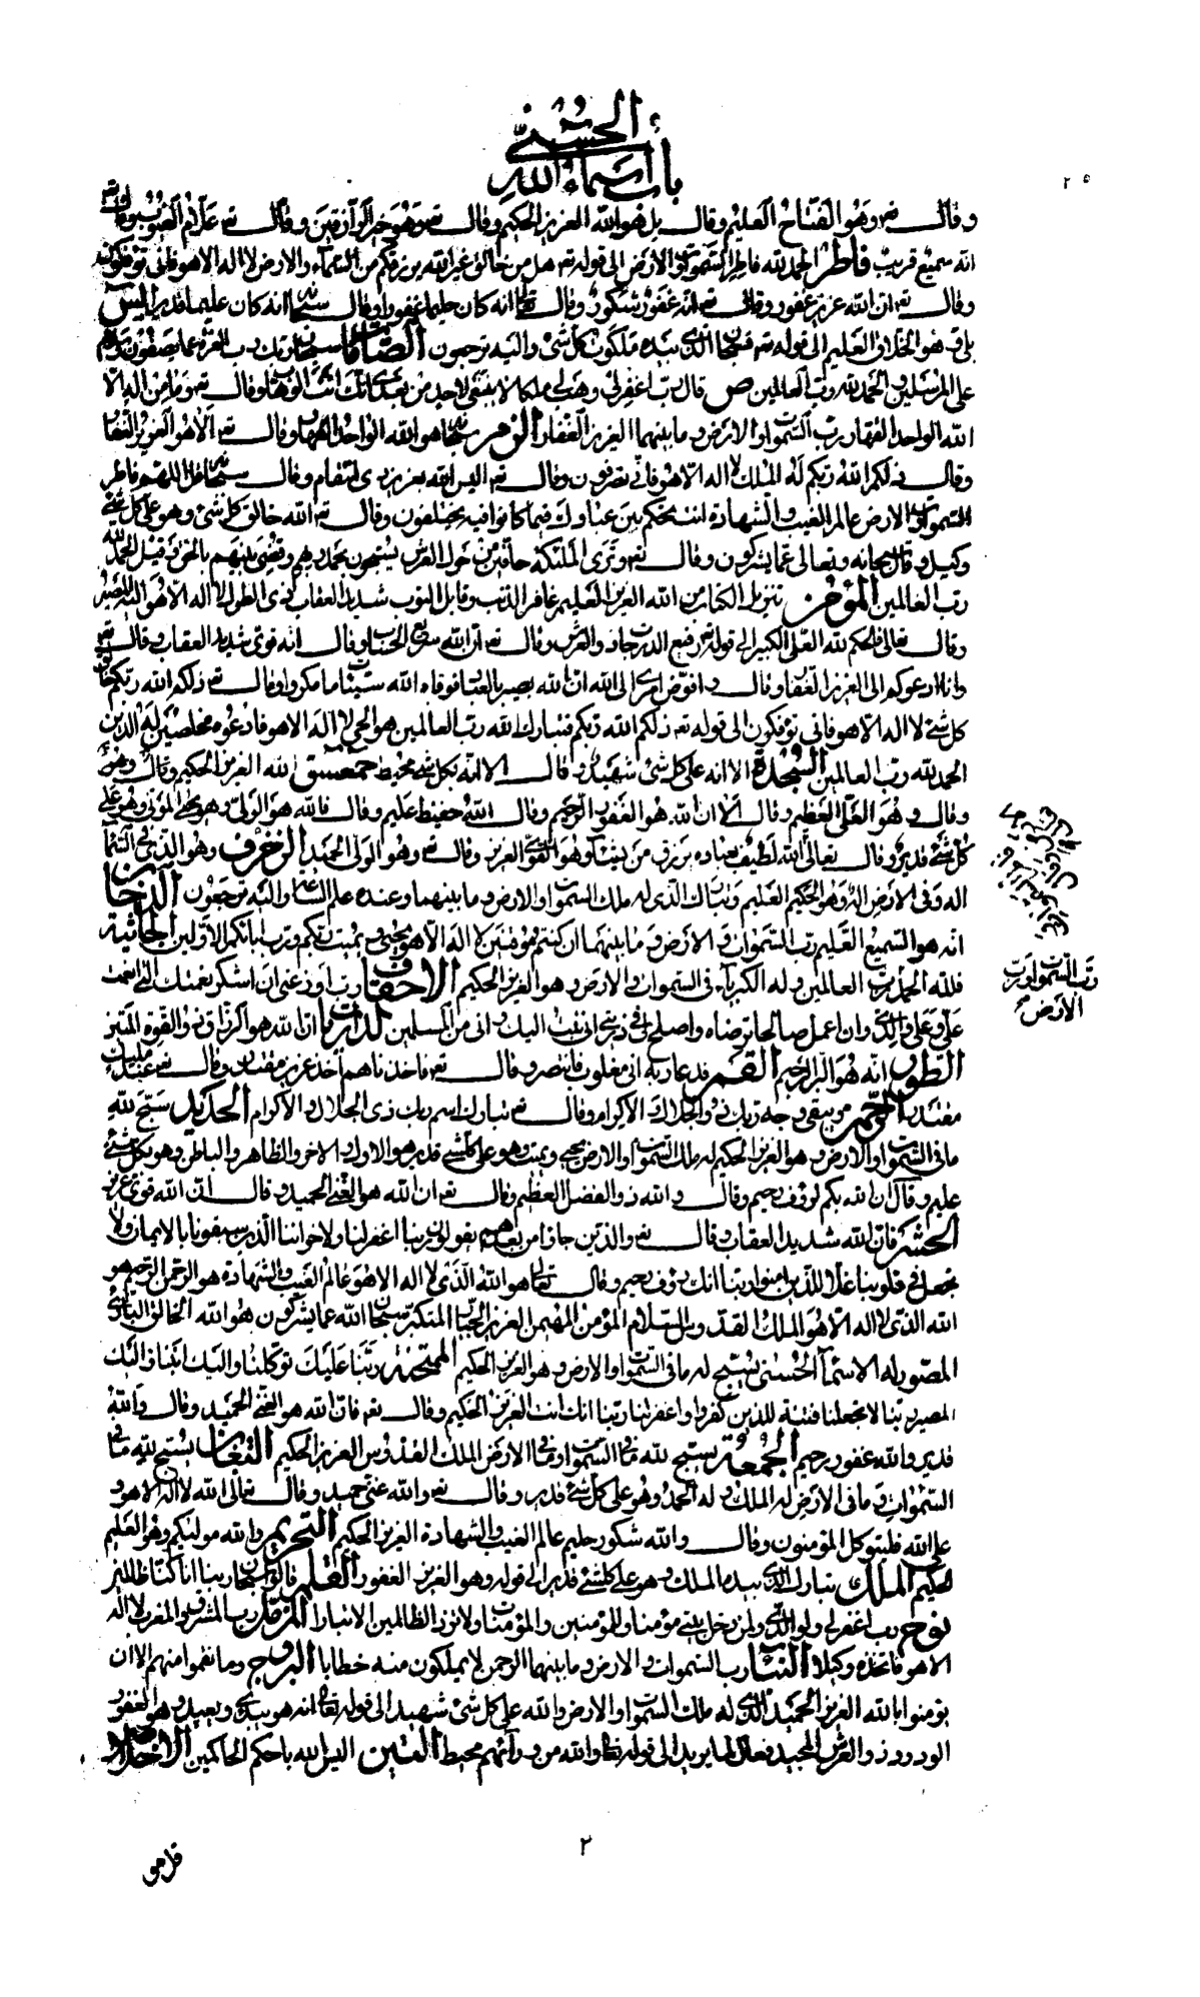 باب أسماء الله الحسنى
٢٥
وقال تع وهو الفتاح العليم وقال بل هو الله العزيز الحكيم وقال تع وهو خير الرازقين وقال تع علام الغيوب وقال تع
انه سميع قريب فاطر الحمد لله فاطر السموات والارض الى قوله تع هل من خالق غير الله يرزقكم من السماء والارض لا اله الا هو فانى تؤفكون
وقال تع ان الله عزيز غفور وقال تع انه غفور شكور وقال تعالى انه كان حليما غفورا وقال سبحانه انه كان عليما قديرا يس
بلى وهو الخلاق العليم الى قوله تع فسبحان الذي بيده ملكوت كل شئ واليه ترجعون الصافات سبحان ربك رب العزة عما يصفون وسلام
على المرسلين والحمد لله رب العالمين ص قال رب اغفر لي وهب لي ملكا لا ينبغي لاحد من بعدي انك انت الوهاب وقال تع وما من اله الا
الله الواحد القهار رب السموات والارض وما بينهما العزيز الغفار الزمر سبحانه هو الله الواحد القهار وقال تع الا هو العزيز الغفار
وقال ذلكم الله ربكم له الملك لا اله الا هو فانى تصرفون وقال تع اليس الله بعزيز ذي انتقام وقال سبحانه قل اللهم فاطر
السموات والارض عالم الغيب والشهادة انت تحكم بين عبادك فيما كانوا فيه يختلفون وقال تع الله خالق كل شئ وهو على كل شئ
وكيل وقال سبحانه وتعالى عما يشركون وقال تع وترى الملئكة حافين من حول العرش يسبحون بحمد ربهم وقضى بينهم بالحق وقيل الحمد لله
رب العالمين المؤمن تنزيل الكتاب من الله العزيز العليم غافر الذنب وقابل التوب شديد العقاب ذي الطول لا اله الا هو اليه المصير
وقال تعالى فالحكم لله العلي الكبير الى قوله تع رفيع الدرجات ذو العرش وقال تع ان الله سريع الحساب وقال انه قوي شديد العقاب وقال تع
وانا ادعوكم الى العزيز الغفار وقال وافوض امري الى الله ان الله بصير بالعباد فوقاه الله سيئات ما مكروا وقال تع ذلكم الله ربكم خالق
كل شئ لا اله الا هو فانى تؤفكون الى قوله تع ذلكم الله ربكم فتبارك الله رب العالمين هو الحي لا اله الا هو فادعوه مخلصين له الدين
الحمد لله رب العالمين السجدة الا انه على كل شئ شهيد وقال الا انه بكل شئ محيط حمعسق الله العزيز الحكيم وقال وهو
وقال وهو العلي العظيم وقال الا ان الله هو الغفور الرحيم وقال الله حفيظ عليم وقال فالله هو الولي وهو يحيي الموتى وهو على
كل شئ قدير وقال تعالى الله لطيف بعباده يرزق من يشاء وهو القوي العزيز وقال تع وهو الولي الحميد الزخرف وهو الذي في السماء
اله وفي الارض اله وهو الحكيم العليم وتبارك الذي له ملك السموات والارض وما بينهما وعنده علم الساعة واليه ترجعون الدخان
انه هو السميع العليم رب السموات والارض وما بينهما ان كنتم مؤمنين لا اله الا هو يحيي ويميت ربكم ورب ابائكم الاولين الجاثية
فلله الحمد رب العالمين وله الكبرياء في السموات والارض وهو العزيز الحكيم الاحقاف رب اوزعني ان اشكر نعمتك التي انعمت
رب السموات ورب
الارض
علي وعلى والدي وان اعمل صالحا ترضاه واصلح لي في ذريتي اني تبت اليك واني من المسلمين الذاريات ان الله هو الرزاق ذو القوة المتين
الطور انه هو البر الرحيم القمر فدعا ربه اني مغلوب فانتصر وقال تع فاخذناهم اخذ عزيز مقتدر وقال تع عند مليك
مقتدر الرحمن ويبقى وجه ربك ذو الجلال والاكرام وقال تع تبارك اسم ربك ذي الجلال والاكرام الحديد سبح لله
ما في السموات والارض وهو العزيز الحكيم له ملك السموات والارض يحيي ويميت وهو على كل شئ قدير هو الاول والاخر والظاهر والباطن وهو بكل شئ
عليم وقال ان الله بكم لرؤف رحيم وقال والله ذو الفضل العظيم وقال تع ان الله هو الغني الحميد وقال ان الله قوي عزيز
الحشر فان الله شديد العقاب وقال تع والذين جاؤا من بعدهم يقولون ربنا اغفر لنا ولاخواننا الذين سبقونا بالايمان ولا
تجعل في قلوبنا غلا للذين امنوا ربنا انك رؤف رحيم وقال تعالى هو الله الذي لا اله الا هو عالم الغيب والشهادة هو الرحمن الرحيم هو
الله الذي لا اله الا هو الملك القدوس السلام المؤمن المهيمن العزيز الجبار المتكبر سبحان الله عما يشركون هو الله الخالق البارئ
المصور له الاسماء الحسنى يسبح له ما في السموات والارض وهو العزيز الحكيم الممتحنة ربنا عليك توكلنا واليك انبنا واليك
المصير ربنا لا تجعلنا فتنة للذين كفروا واغفر لنا ربنا انك انت العزيز الحكيم وقال تع فان الله هو الغني الحميد وقال والله
قدير والله غفور رحيم الجمعة يسبح لله ما في السموات وما في الارض الملك القدوس العزيز الحكيم التغابن يسبح لله ما في
السموات وما في الارض له الملك وله الحمد وهو على كل شئ قدير وقال تع والله غني حميد وقال تعالى الله لا اله الا هو و
على الله فليتوكل المؤمنون وقال والله شكور حليم عالم الغيب والشهادة العزيز الحكيم التحريم والله موليكم وهو العليم
الحكيم الملك تبارك الذي بيده الملك وهو على كل شئ قدير الى قوله وهو العزيز الغفور القلم قالوا سبحان ربنا انا كنا ظالمين
نوح رب اغفر لي ولوالدي ولمن دخل بيتي مؤمنا وللمؤمنين والمؤمنات ولا تزد الظالمين الا تبارا المزمل رب المشرق والمغرب لا اله
الا هو فاتخذه وكيلا النبأ رب السموات والارض وما بينهما الرحمن لا يملكون منه خطابا البروج وما نقموا منهم الا ان
يؤمنوا بالله العزيز الحميد الذي له ملك السموات والارض والله على كل شئ شهيد الى قوله تعالى انه هو يبدئ ويعيد وهو الغفور
الودود ذو العرش المجيد فعال لما يريد الى قوله تعالى والله من ورائهم محيط التين اليس الله باحكم الحاكمين الاخلاص
٢
قل هو